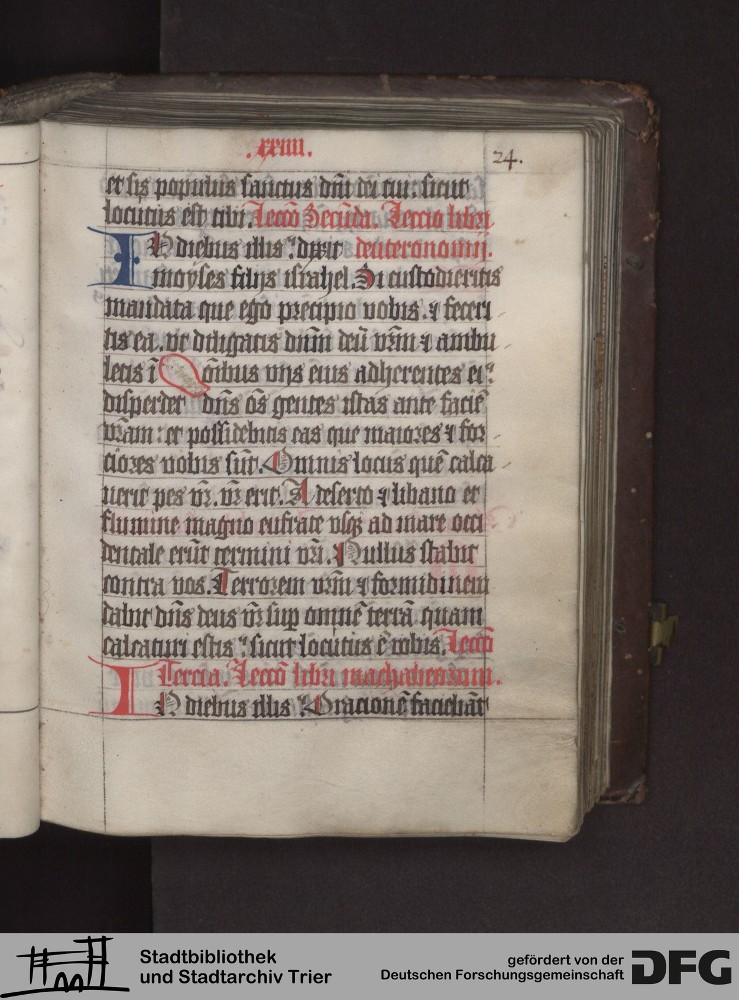 .xxiiii.
24.
et sis populus sanctus dñi dei tui: sicut
locutus est tibi. Lecco Secũda. Leccio libri
IN diebus illis: dixit deuteronomij.
moyses filijs israhel. Si custodieritis
mandata que ego precipio vobis. ⁊ feceri
tis ea. vt diligatis dñm deũ vr̃m ⁊ ambu
letis ĩ oĩbus vijs eius adherentes ei:
disperdet dñs oẽs gentes istas ante faciẽ
vr̃am: et possidebitis eas que maiores ⁊ for
ciores vobis sũt. Omnis locus quẽ calca
uerit pes vr̃. vr̃ erit. A deserto ⁊ libano et
flumine magno eufrate vsqꝫ ad mare occi
dentale erũt termini vr̃i. Nullus stabit
contra vos. Terrorem vr̃m ⁊ formidinem
dabit dñs deus vr̃ sup omnẽ terrã quam
calcaturi estis: sicut locutus ẽ vobis. Leccõ
Tercia. Leccõ libri machabeorum.
IN diebus illis: Oracionẽ faciebãt
Stadtbibliothek
und Stadtarchiv Trier
gefördert von der
Deutschen Forschungsgemeinschaft
DFG